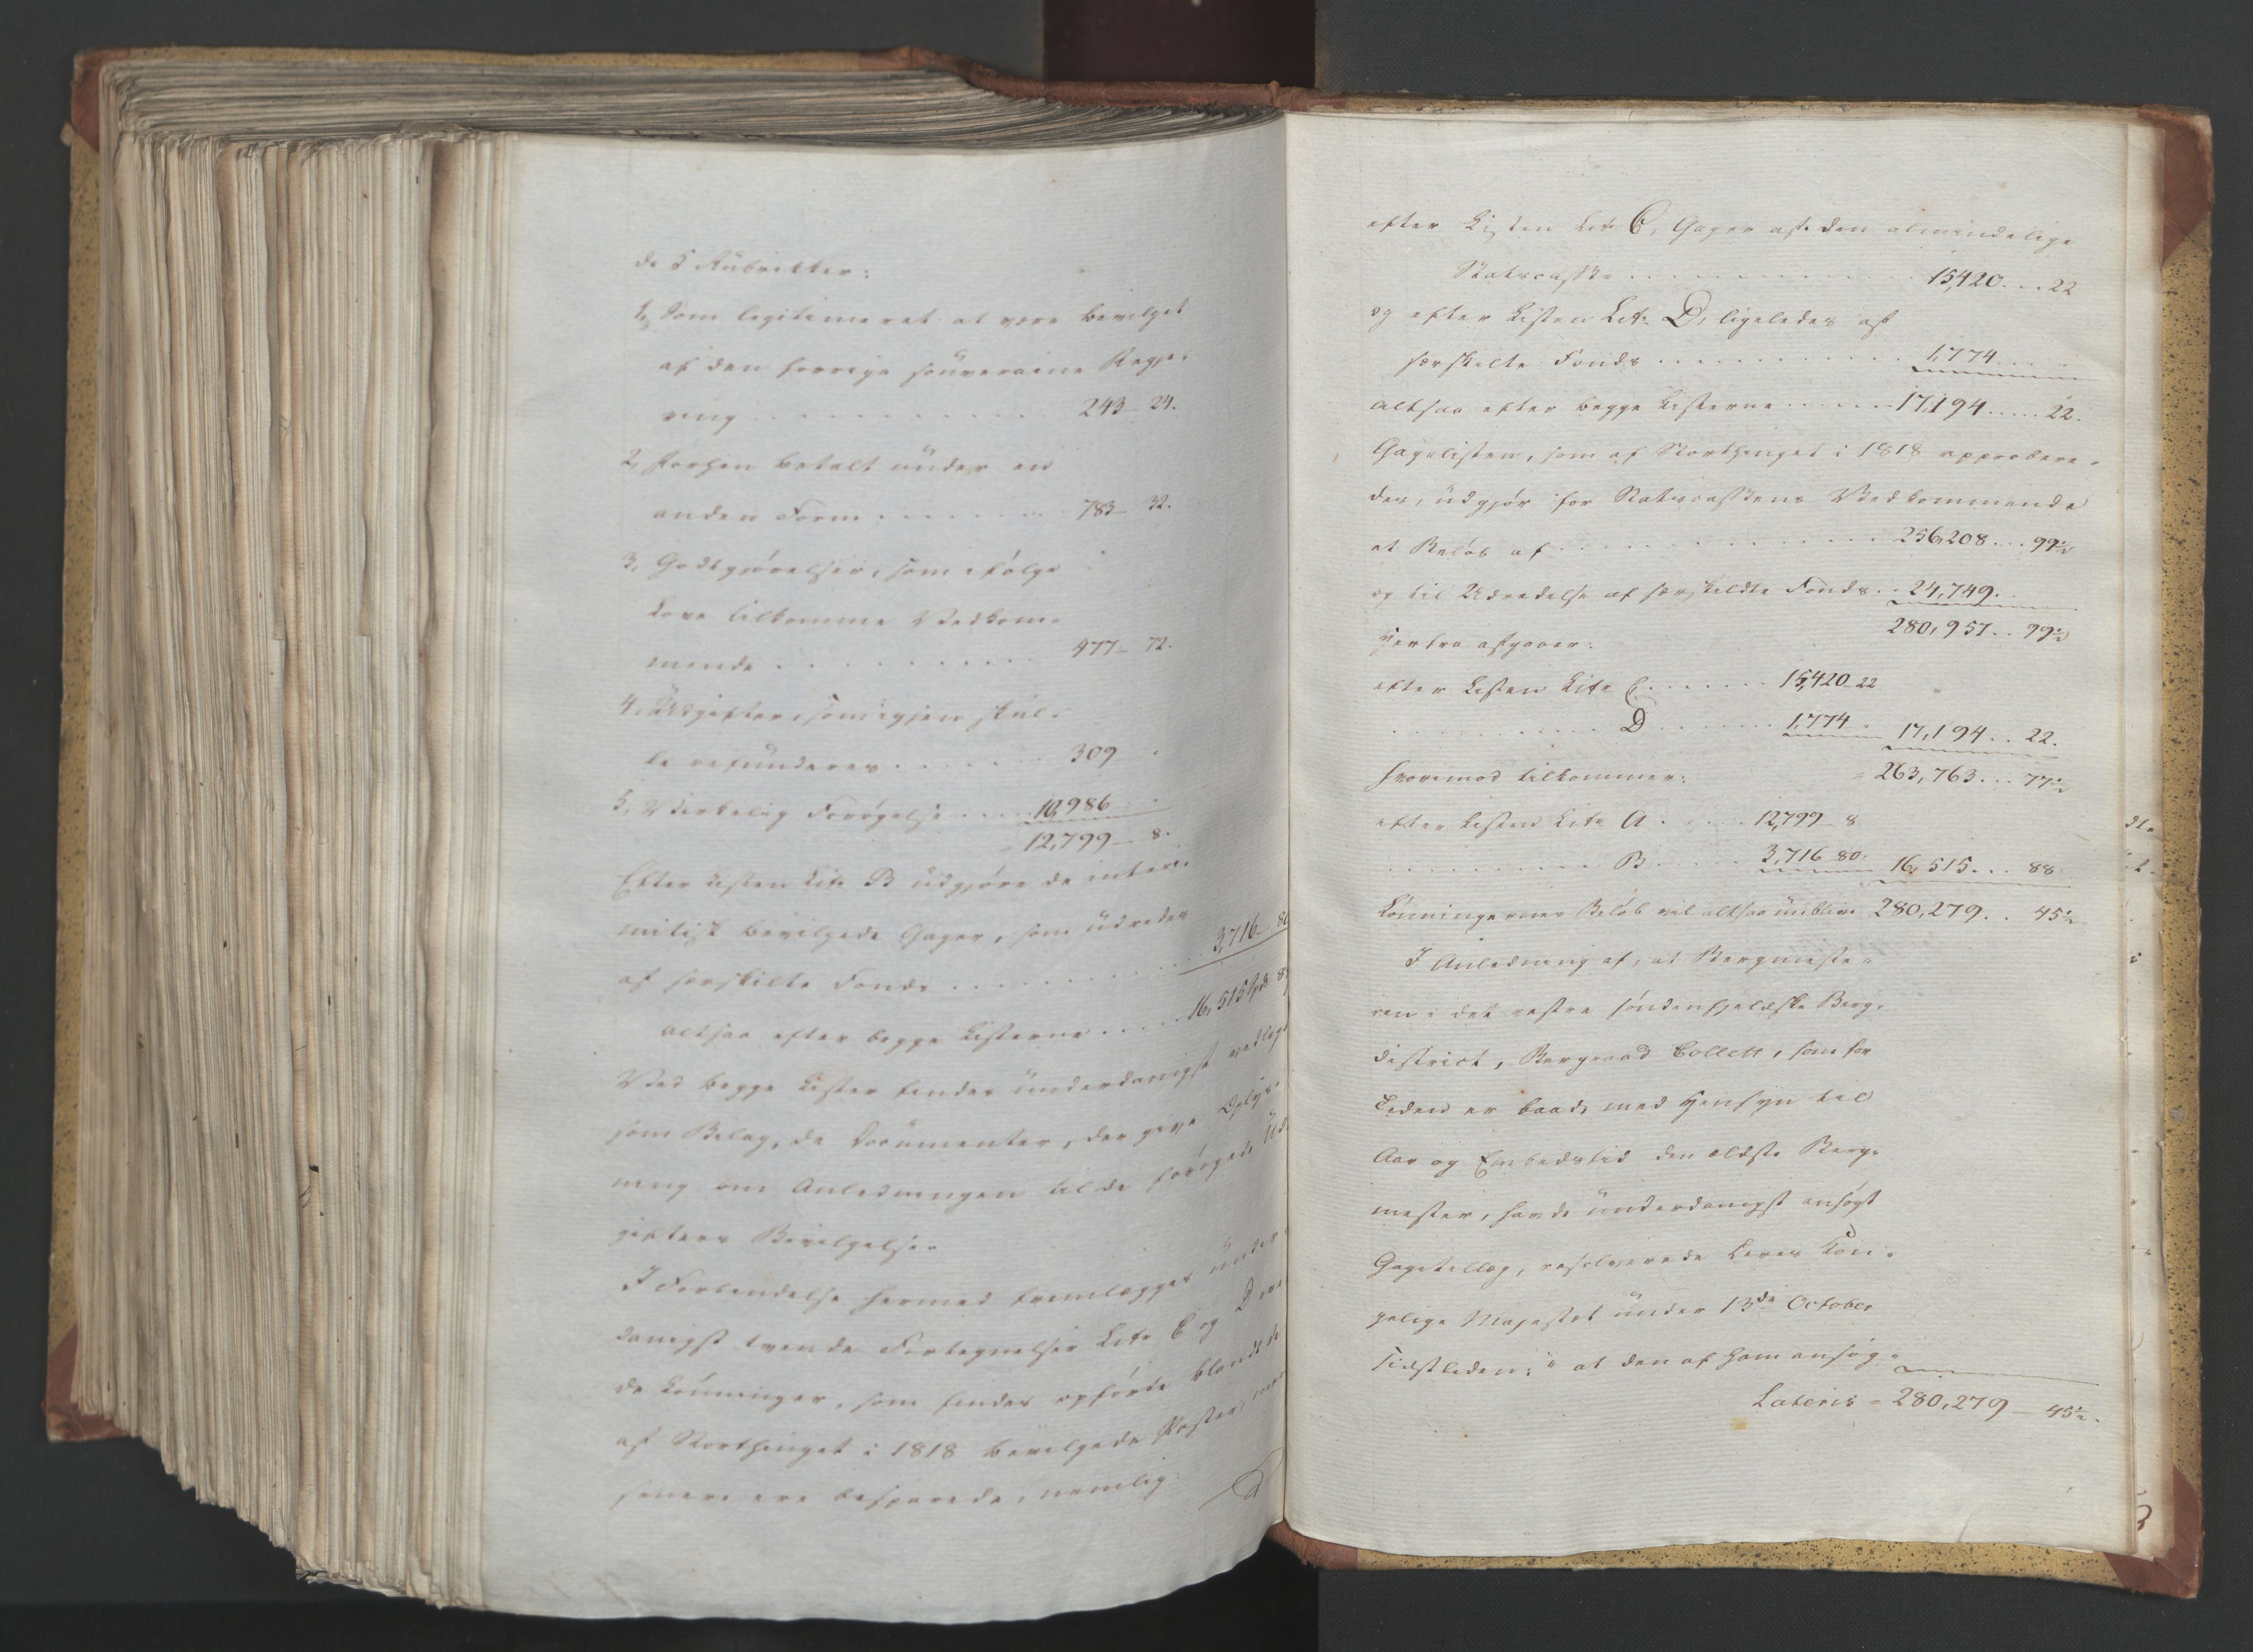 de 5 Rubrikker:
1, Som legitimeret at være bevilget
af den forrige souveraine Regje-
ring . . . . . . . . . 243 – 24.
2, forhen betalt under en
anden Form . . . . . . . 783 – 32.
3, Godtgjørelser, som ifølge
Love tilkomme Vedkom-
mende . . . . . . . . . 477 – 72.
4, Udgifter, som igjen skul-
le refunderes . . . . . . . 309
5, Virkelig Forøgelse . . . . 10,986
12,799 – 8.
Efter Listen Litr B udgjøre de interi-
mistisk bevilgede Gager, som udredes
af særskilte Fonds . . . . . . . . . 3,716 – 80
altsaa efter begge Listerne . . . . . 16,515 Spd 88
Ved begge Lister findes underdanigst vedlagt
som Bilag, de Documenter, der give Oplys-
ning om Anledningen til de forøgede Ud-
gifters Bevilgelse.
I Forbindelse hermed fremlægges under-
danigst tvende Fortegnelser Litr C og D, over
de Lønninger, som findes opførte blandt de
af Storthinget i 1818 bevilgede Poster, men
senere ere besparede, nemlig:
efter Listen Litr C, Gager af den almindelige
Statscasse . . . . . . . . . . . 15,420 . . . 22
og efter Listen Litr D, ligeledes af
særskilte Fonds . . . . . . . . . . 1,774
altsaa efter begge Listerne . . . . . . 17,194 . . . . . 22.
Gagelisten, som af Storthinget i 1818 approbere-
des, udgjør for Statscassens Vedkommende
et Beløb af . . . . . . . . . . . . 256,208 . . . 99½
og til Udredelse af særskildte Fonds . . 24,749.
280,957 . . 99½
Herfra afgaaer:
efter Listen Litr C . . . . . . 15,420 – 22
. . . . . . . . . D . . . . . . . 1,774 – 17,194 . . 22.
hvorimod tilkommer: = 263,763 . . . 77½
efter Listen Litr A . . . . . 12,799 – 8
. . . . . . . . . B . . . . . 3,716 – 80. 16,515 . . . 88
Lønningernes Beløb vil altsaa nu blive 280,279 . . 45½
I Anledning af, at Bergmeste-
ren i det vestre søndenfjeldske Berg-
district, Bergraad Collett, som for
Tiden er baade med Hensyn til
Aar og Embedstid den ældste Berg-
mester, havde underdanigst ansøgt
Gagetillæg, resolverede Deres Kon-
gelige Majestæt under 13de October
sidstleden: " at den af ham ansøg-
Lateris = 280,279 – 45½.